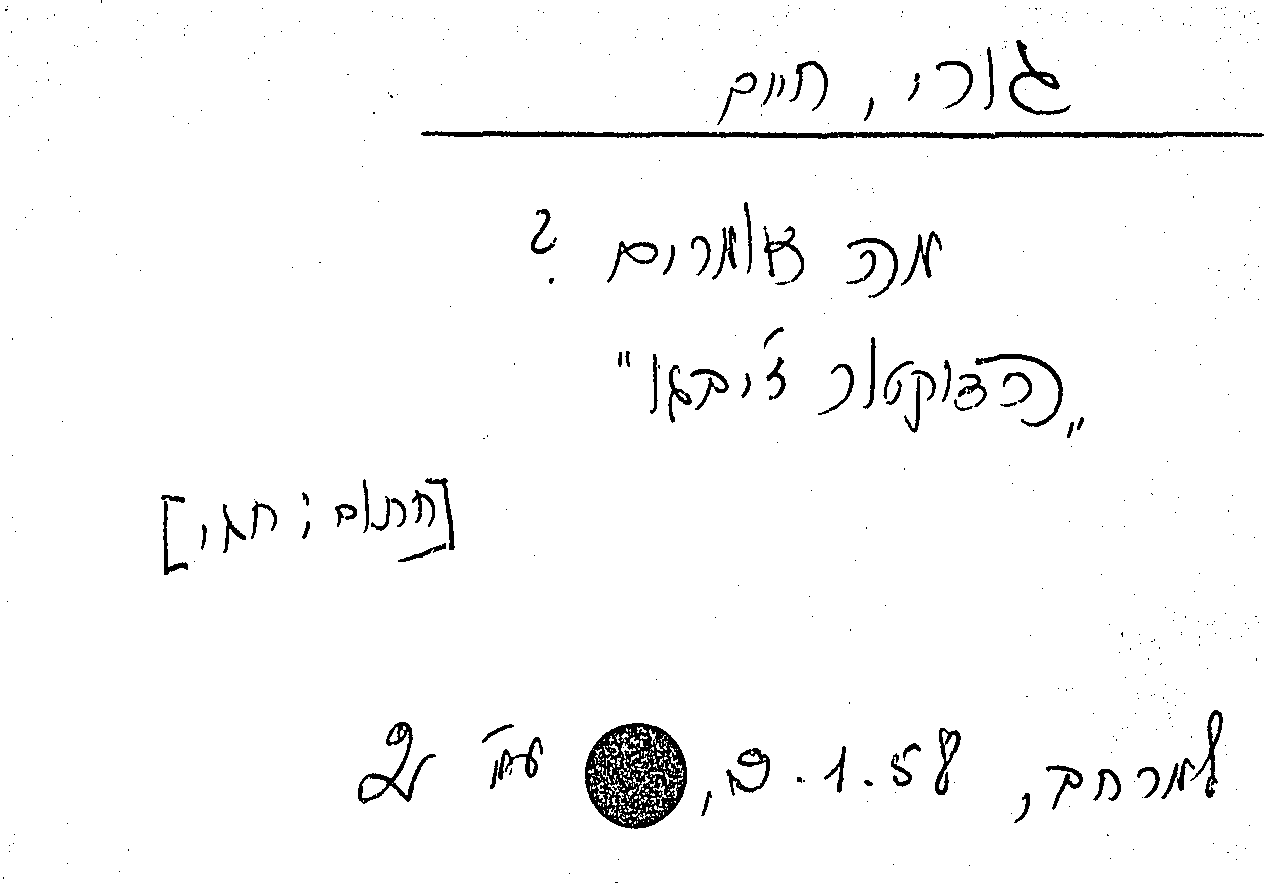 גורי, חיים
מה אומרים?
„הדוקטור ז'יבגו"
[חתום; חגי]
למרחב, 9.1.58, עמ' 2